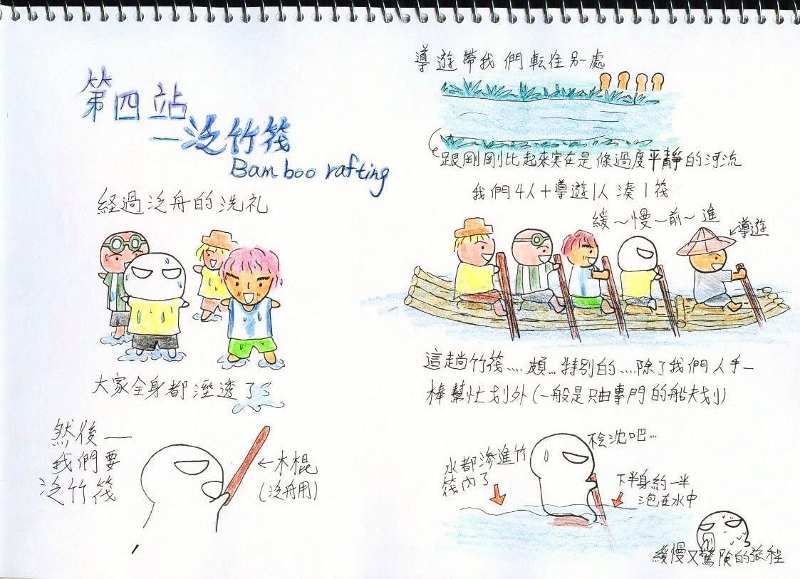 第四站
—泛竹筏
Bamboo rafting
經過泛舟的洗礼
大家全身都溼透了
然後—
我們要
泛竹筏
←木棍
(泛舟用)
導遊帶我們転往別處
跟剛剛比起來実在是條過度平靜的河流
我們4人+導遊1人湊1筏
緩～慢～前～進
導遊
這趟竹筏....頗...特別的....除了我們人手一
棒幫忙划外(一般是只由專門的船夫划)
水都滲進竹
筏內了
不会沈吧...
下半身約一半
泡在水中
緩慢又驚險的旅程